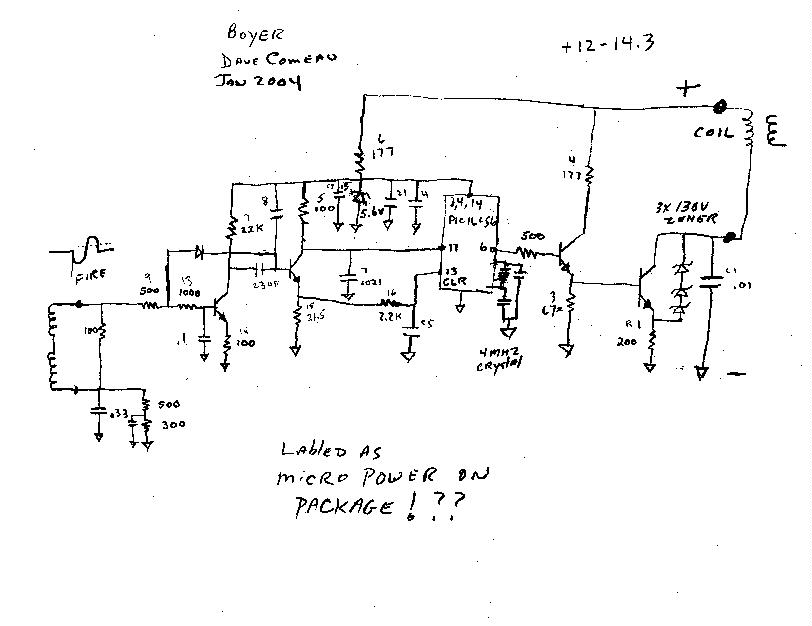 BOYER
DAVE COMEAU
JAN 2004
+12-14.3
+
COIL
6
177
4
177
8
7
22K
5
100
5.6V
21
4
3,4,14
PIC16C56
17
6
500
3X 130V
ZENER
FIRE
9
500
13
1000
230P
7
.0021
13
CLR
16
2.2K
15
21.5
C5
3
C1
.01
R1
200
4MHZ
CRYSTAL
100
.1
100
.033
500
300
-
LABLED AS
MICRO POWER ON
PACKAGE ! ??